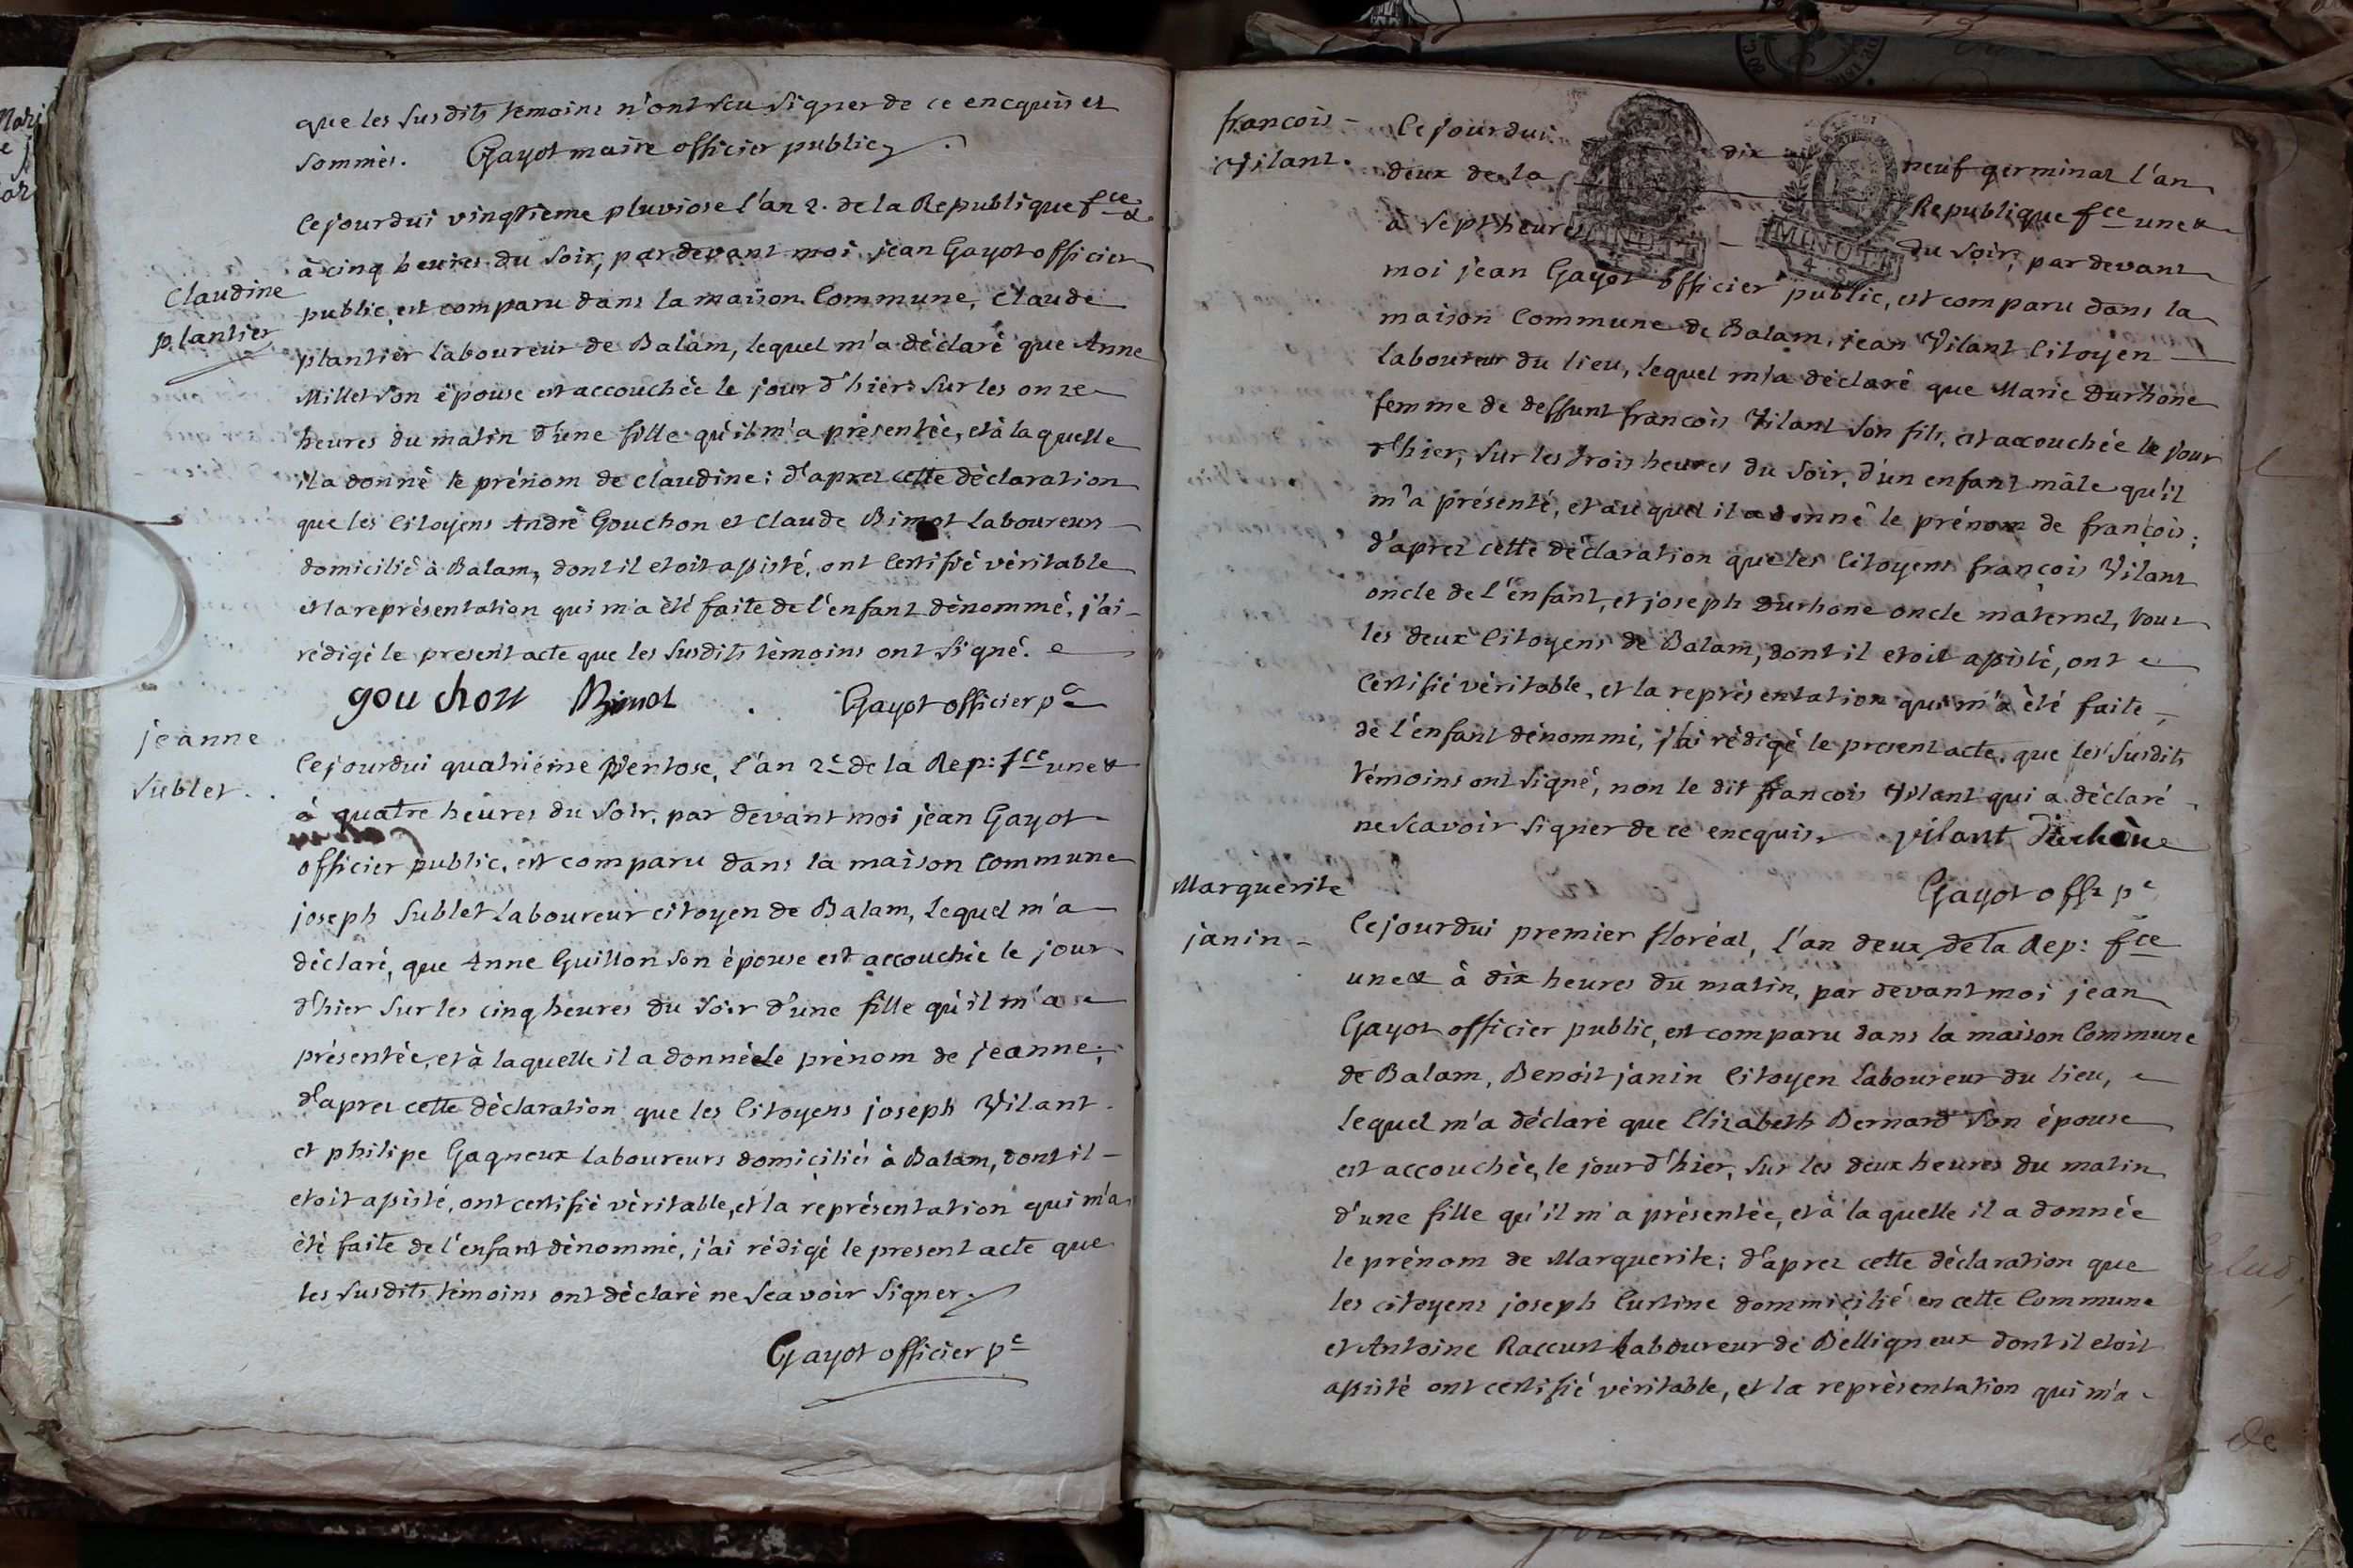 que les susdits temoins n'ont scu signer de ce encquis et
sommés. Gayot maire officier public
Claudine
plantier
Cejourdui vingtieme pluviose l'an 2. de la Republique fce
à cinq heures du soir, pardevant moi jean Gayot officier
public, est comparu dans la maison Commune, Claude
plantier laboureur de Balam, lequel m'a déclaré que Anne
Millet son épouse est accouchée le jour d'hier sur les onze
heures du matin d'une fille qu'il m'a présentée, et à laquelle
il a donné le prénom de claudine; d'aprez cette déclaration
que les Citoyens André Gouchon et Claude Binot laboureurs
domicilié à Balam, dont il etoit assisté, ont certifié véritable
et la représentation qui m'a été faite de l'enfant dénommé, j'ai
rédigé le present acte que les susdits témoins ont signé.
gouchon Binot Gayot officier pc
jeanne
sublet.
Cejourdui quatriéme Ventose, l'an 2e de la Rep: fce une &
à quatre heures du soir, par devant moi jean Gayot
officier public, est comparu dans la maison Commune
joseph Sublet laboureur citoyen de Balam, lequel m'a
déclaré, que Anne Guillon son épouse est accouchée le jour
d'hier sur les cinq heures du soir d'une fille qu'il m'a
présentée, et à laquelle il a donnée le prénom de jeanne;
d'aprez cette déclaration que les Citoyens joseph Vilant
et philipe Gagneux laboureurs domiciliés à Balam, dont il
etoit assisté, ont certifié véritable, et la représentation qui m'a
été faite de l'enfant dénommé, j'ai rédigé le present acte que
les susdits témoins ont déclaré ne scavoir signer.
Gayot officier pc
françois
Vilant.
Cejourdui dix neuf germinal l'an
deux de la Republique fce une &
à sept heures du soir, pardevant
MINUTE
MINUTE
4. S.
moi jean Gayot officier public, est comparu dans la
maison Commune de Balam, jean Vilant Citoyen
laboureur du lieu, lequel m'a déclaré que Marie Durhone
femme de deffunt françois Vilant son fils, est accouchée le jour
d'hier, sur les trois heures du soir, d'un enfant mâle qu'il
m'a présenté, et auquel il a donné le prénom de françois;
d'aprez cette déclaration que les Citoyens françois Vilant
oncle de l'enfant, et joseph Durhone oncle maternel, tous
les deux Citoyens de Balam, dont il etoit assisté, ont
Certifié véritable, et la représentation qui m'a été faite
de l'enfant dénommé, j'ai rédigé le present acte, que les susdits
témoins ont signé, non le dit françois Vilant qui a déclaré
ne scavoir signer de ce encquis. vilant
Gayot offr pc
Marguerite
janin
Cejourdui premier floréal, l'an deux de la Rep: fce
une & à dix heures du matin, par devant moi jean
Gayot officier public, est comparu dans la maison Commune
de Balam, Benoit janin Citoyen laboureur du lieu,
lequel m'a déclaré que Elizabeth Bernard son épouse
est accouchée, le jour d'hier, sur les deux heures du matin
d'une fille qu'il m'a présentée, et à laquelle il a donnée
le prénom de Marguerite; d'aprez cette déclaration que
les citoyens joseph Curtine dommicilié en cette Commune
et Antoine Raccurt laboureur de Belligneux dont il etoit
assisté ont certifié véritable, et la représentation qui m'a